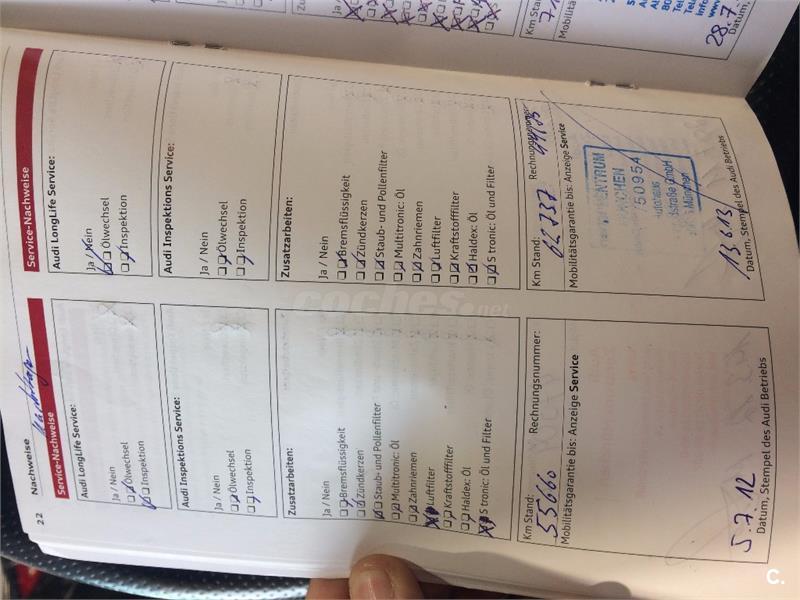 22 Nachweise
Service-Nachweise
Audi LongLife Service:
Ja / Nein
Ölwechsel
Inspektion
Audi Inspektions Service:
Ja / Nein
Ölwechsel
Inspektion
Zusatzarbeiten:
Ja / Nein
Bremsflüssigkeit
Zündkerzen
Staub- und Pollenfilter
Multitronic: Öl
Zahnriemen
Luftfilter
Kraftstofffilter
Haldex: Öl
S tronic: Öl und Filter
Km Stand: Rechnungsnummer:
55660
Mobilitätsgarantie bis: Anzeige Service
5.7.12
Datum, Stempel des Audi Betriebs
Service-Nachweise
Audi LongLife Service:
Ja / Nein
Ölwechsel
Inspektion
Audi Inspektions Service:
Ja / Nein
Ölwechsel
Inspektion
Zusatzarbeiten:
Ja / Nein
Bremsflüssigkeit
Zündkerzen
Staub- und Pollenfilter
Multitronic: Öl
Zahnriemen
Luftfilter
Kraftstofffilter
Haldex: Öl
S tronic: Öl und Filter
Km Stand: Rechnungsnummer:
62737
Mobilitätsgarantie bis: Anzeige Service
ZENTRUM
5095A
13.6.13
Datum, Stempel des Audi Betriebs
Ja
Km Stand
Mobilitäts
28.7.
Datum,
coches.net
C.